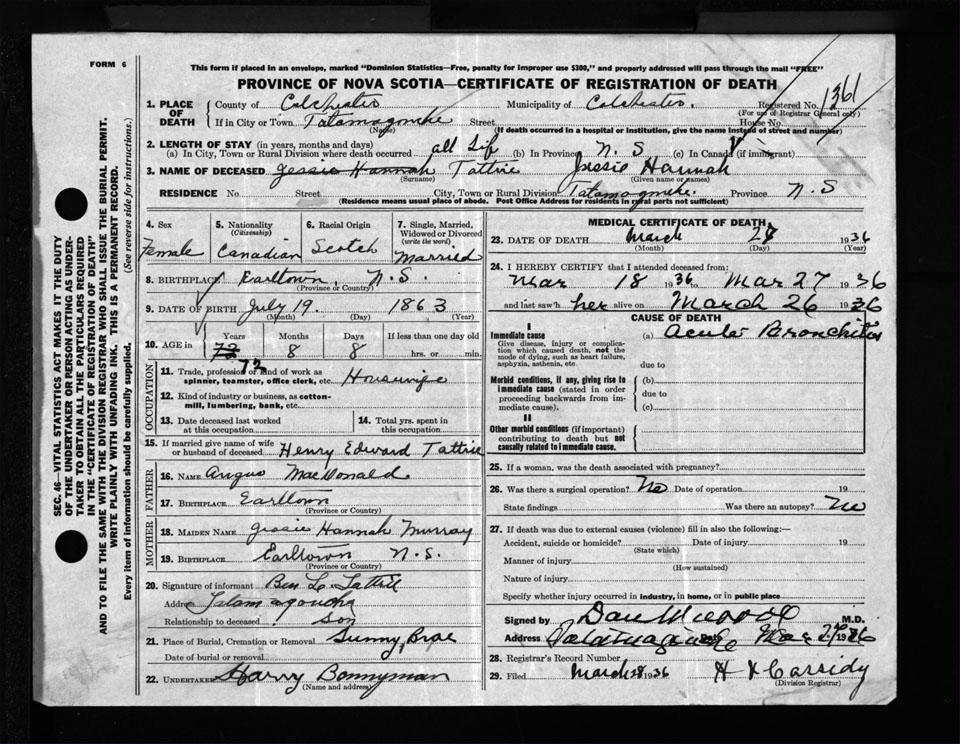 FORM 6
This form if placed in an envelope, marked "Dominion Statistics—Free, penalty for improper use $300," and properly addressed will pass through the mail "FREE"
PROVINCE OF NOVA SCOTIA—CERTIFICATE OF REGISTRATION OF DEATH
1. PLACE OF DEATH County of Colchester Municipality of Colchester. Registered No. 1361
(For use of Registrar General only)
If in City or Town Tatamagouche Street House No.
(Name) (If death occurred in a hospital or institution, give the name instead of street and number)
2. LENGTH OF STAY (in years, months and days)
(a) In City, Town or Rural Division where death occurred all Lif (b) In Province N. S (c) In Canada (if immigrant)
3. NAME OF DECEASED Jessie Hannah Tattrie Jessie Hannah
(Surname) (Given name or names)
RESIDENCE No Street City, Town or Rural Division Tatamagouche. Province N. S
(Residence means usual place of abode. Post Office Address for residents in rural parts not sufficient)
4. Sex Female
5. Nationality (Citizenship) Canadian
6. Racial Origin Scotch
7. Single, Married, Widowed or Divorced (write the word) Married
8. BIRTHPLACE Earltown, N. S.
(Province or Country)
9. DATE OF BIRTH July 19. 1863
(Month) (Day) (Year)
10. AGE in Years 73 72 Months 8 Days 8 If less than one day old hrs. or min.
OCCUPATION
11. Trade, profession or kind of work as spinner, teamster, office clerk, etc. Housewife
12. Kind of industry or business, as cotton-mill, lumbering, bank, etc.
13. Date deceased last worked at this occupation
14. Total yrs. spent in this occupation
15. If married give name of wife or husband of deceased Henry Edward Tattrie
FATHER
16. NAME Angus MacDonald
17. BIRTHPLACE Earltown
(Province or Country)
MOTHER
18. MAIDEN NAME Jessie Hannah Murray
19. BIRTHPLACE Earltown N. S.
(Province or Country)
20. Signature of informant Ben L. Tattrie
Address Tatamagouche
Relationship to deceased Son
21. Place of Burial, Cremation or Removal Sunny Brae
Date of burial or removal
22. UNDERTAKER Harry Bonnyman
(Name and address)
MEDICAL CERTIFICATE OF DEATH
23. DATE OF DEATH March 27 1936
(Month) (Day) (Year)
24. I HEREBY CERTIFY that I attended deceased from:
Mar 18 1936 to Mar 27 1936
and last saw h her alive on March 26 1936
CAUSE OF DEATH
I
Immediate cause (a) Acute Bronchitis
Give disease, injury or complication which caused death, not the mode of dying, such as heart failure, asphyxia, asthenia, etc.
due to
Morbid conditions, if any, giving rise to immediate cause (stated in order proceeding backwards from immediate cause).
(b)
due to
(c)
II
Other morbid conditions (if important) contributing to death but not causally related to immediate cause.
25. If a woman, was the death associated with pregnancy?
26. Was there a surgical operation? No Date of operation 19
State findings Was there an autopsy? No
27. If death was due to external causes (violence) fill in also the following:—
Accident, suicide or homicide? Date of injury 19
(State which)
Manner of injury
(How sustained)
Nature of injury
Specify whether injury occurred in industry, in home, or in public place
Signed by Dan M.D.
Address Tatamagouche Mar 27 1936
28. Registrar's Record Number
29. Filed March 28 1936 H K Cassidy
(Division Registrar)
SEC. 46—VITAL STATISTICS ACT MAKES IT THE DUTY
OF THE UNDERTAKER OR PERSON ACTING AS UNDER-
TAKER TO OBTAIN ALL THE PARTICULARS REQUIRED
IN THE "CERTIFICATE OF REGISTRATION OF DEATH"
AND TO FILE THE SAME WITH THE DIVISION REGISTRAR WHO SHALL ISSUE THE BURIAL PERMIT.
WRITE PLAINLY WITH UNFADING INK. THIS IS A PERMANENT RECORD.
Every item of information should be carefully supplied. (See reverse side for instructions.)